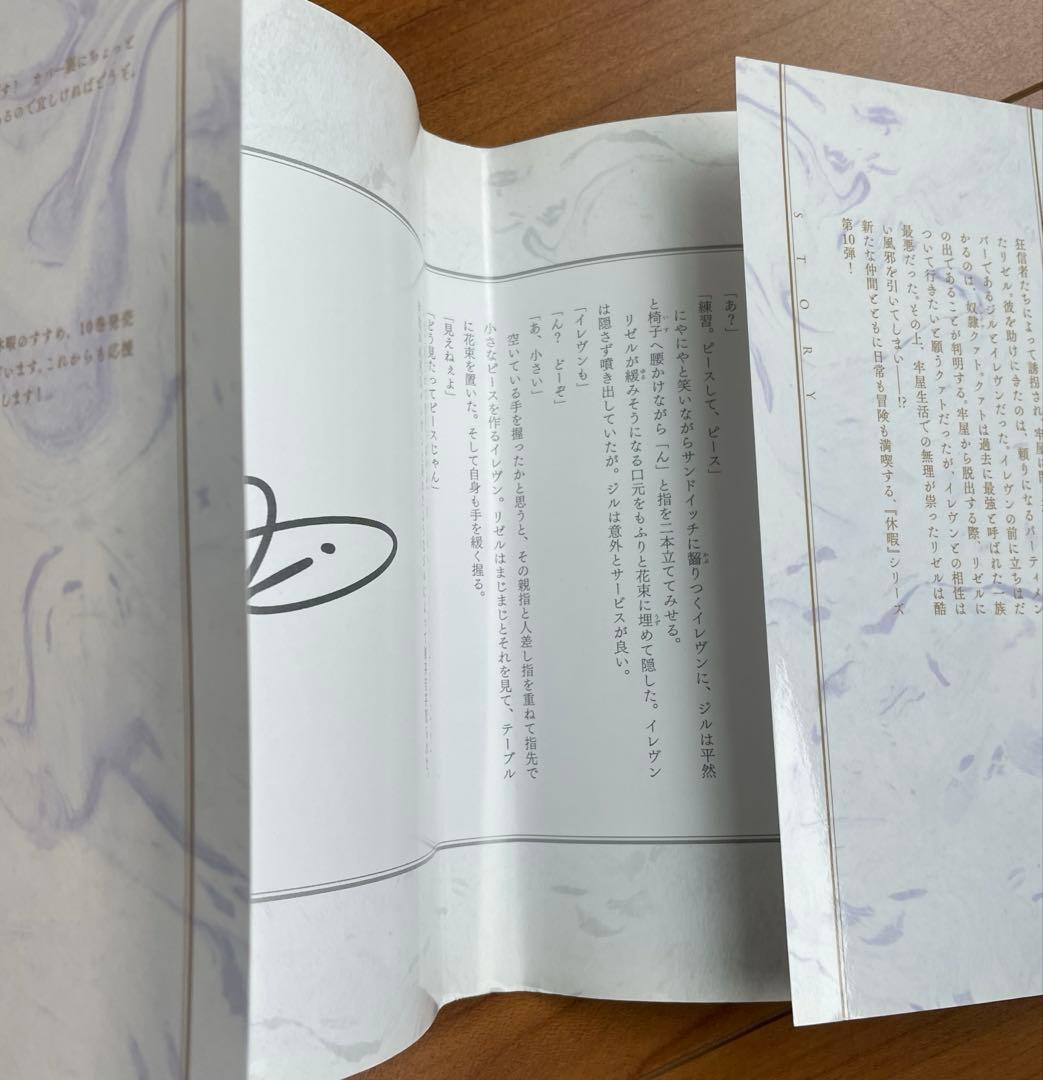 STORY
狂信者たちによって誘拐され、牢屋に
たリゼル。彼を助けにきたのは、頼りになるパーティメン
バーであるジルとイレヴンだった。イレヴンの前に立ちはだ
かるのは、奴隷クァト。クァトは過去に最強と呼ばれた一族
の出であることが判明する。牢屋から脱出する際、リゼルに
ついて行きたいと願うクァトだったが、イレヴンとの相性は
最悪だった。その上、牢屋生活での無理が祟ったリゼルは酷
い風邪を引いてしまい――!?
新たな仲間とともに日常も冒険も満喫する、『休暇』シリーズ
第10弾!
「あ?」
「練習。ピースして、ピース」
にやにやと笑いながらサンドイッチに齧りつくイレヴンに、ジルは平然
と椅子へ腰かけながら「ん」と指を二本立ててみせる。
リゼルが緩みそうになる口元をもふりと花束に埋めて隠した。イレヴン
は隠さず噴き出していたが。ジルは意外とサービスが良い。
「イレヴンも」
「ん? どーぞ」
「あ、小さい」
空いている手を握ったかと思うと、その親指と人差し指を重ねて指先で
小さなピースを作るイレヴン。リゼルはまじまじとそれを見て、テーブル
に花束を置いた。そして自身も手を緩く握る。
「見えねぇよ」
「どう見たってピースじゃん」
す! カバー裏にちょっと
るので宜しければどうぞ。
休暇のすすめ、10巻発売
ざいます。これからも応援
します!